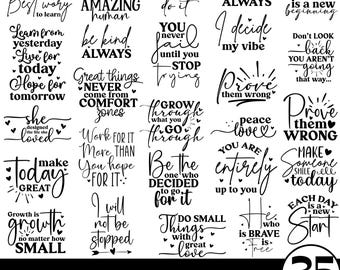 Best way
to learn
AMAZING
human
do it
ALWAYS
is a new
beginning
Learn from
yesterday
Live for
today
Hope for
tomorrow
be kind
ALWAYS
you
never
fail
until you
STOP
trying
I decide
my vibe
DON'T LOOK
back
YOU AREN'T
going
that way...
Great things
NEVER
come from
COMFORT
zones
Prove
them wrong
she
designed
the life she
loved
GROW
through
what you
GO
through
peace
love
Prove
THEM
WRONG
make
Today
GREAT
Work FOR IT
MORE THAN
You hope
FOR IT
Be the
one who
DECIDED
to go
for it
YOU ARE
entirely
up to you
MAKE
Someone
SMILE
today
Growth is
growth
no matter how
SMALL
I will
not be
stopped
DO SMALL
Things
with
great
love
is BRAVE
is free
EACH DAY
is a
new
Start
35